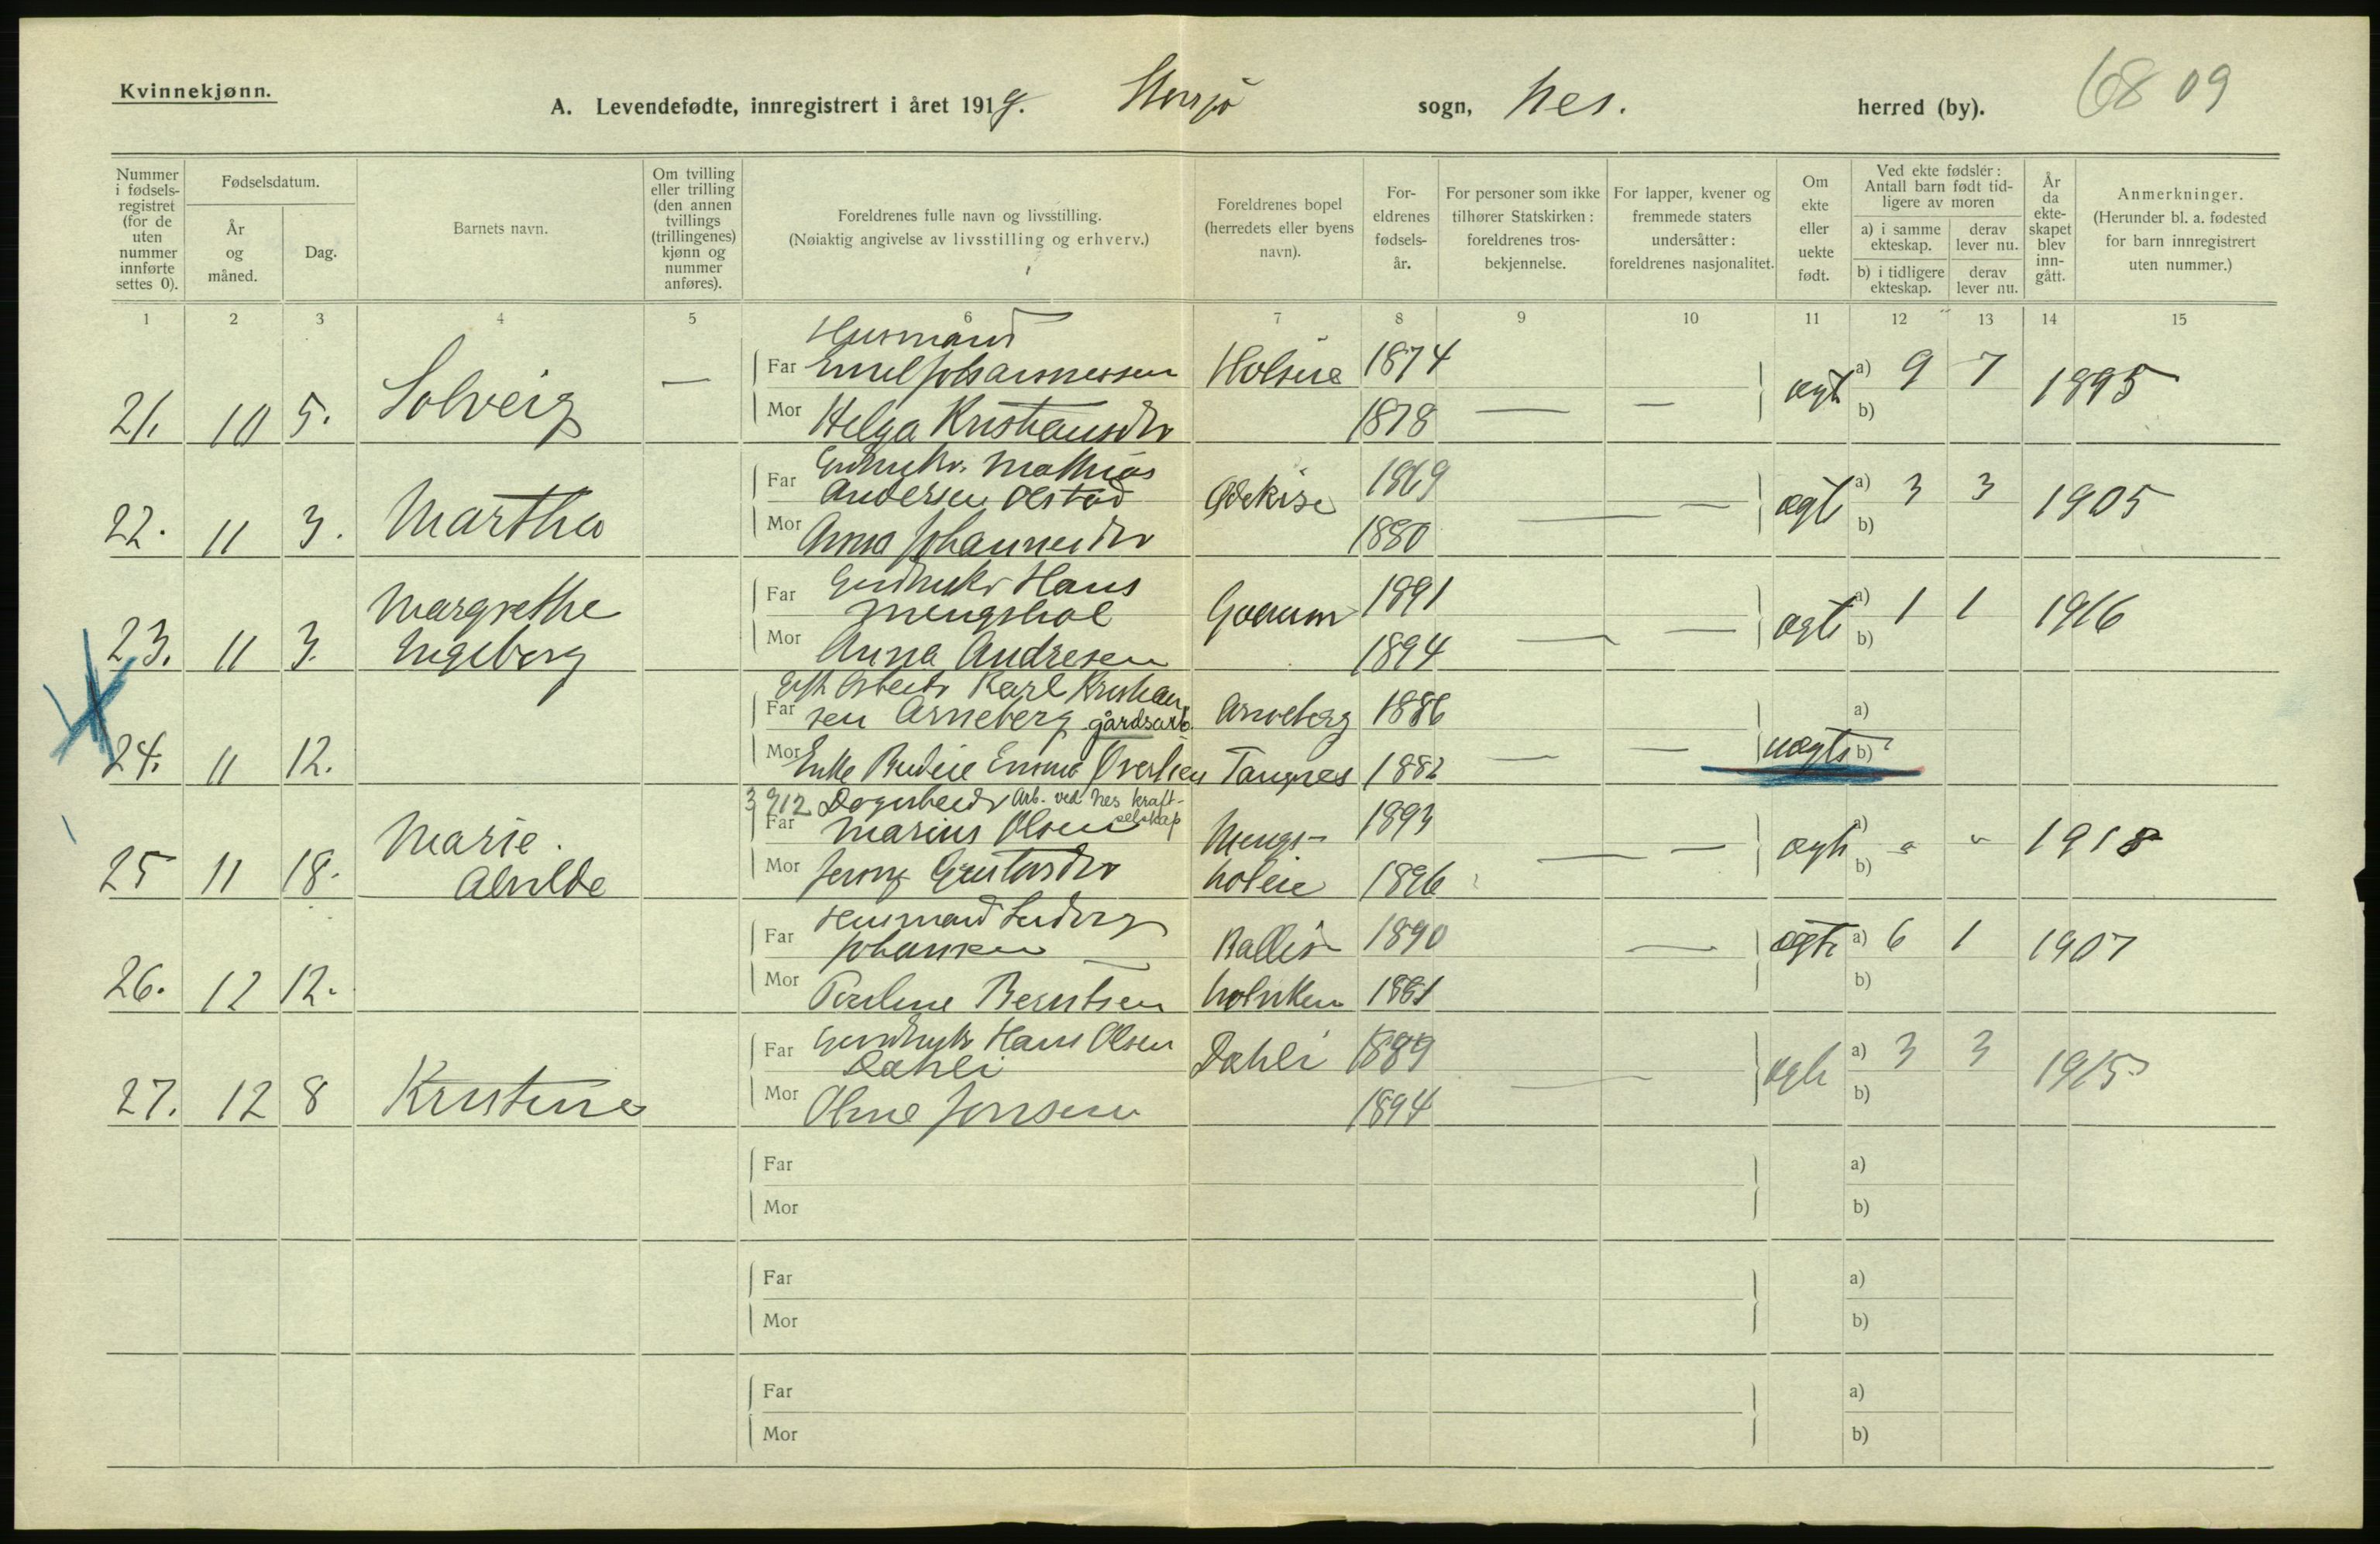 Kvinnekjønn.
A. Levendefødte, innregistrert i året 1919. Storsjø sogn, Nes. herred (by). 68 09
Nummer i fødselsregistret (for de uten nummer innførte settes 0).
Fødselsdatum.
År og måned.
Dag.
Barnets navn.
Om tvilling eller trilling (den annen tvillings (trillingenes) kjønn og nummer anføres).
Foreldrenes fulle navn og livsstilling.
(Nøiaktig angivelse av livsstilling og erhverv.)
Foreldrenes bopel (herredets eller byens navn).
Foreldrenes fødselsår.
For personer som ikke tilhører Statskirken: foreldrenes trosbekjennelse.
For lapper, kvener og fremmede staters undersåtter: foreldrenes nasjonalitet.
Om ekte eller uekte født.
Ved ekte fødsler: Antall barn født tidligere av moren
a) i samme ekteskap.
derav lever nu.
b) i tidligere ekteskap.
derav lever nu.
År da ekteskapet blev inngått.
Anmerkninger.
(Herunder bl. a. fødested for barn innregistrert uten nummer.)
1 2 3 4 5 6 7 8 9 10 11 12 13 14 15
Husmand
Far Emil Johannessen 1874 a) 9 7
21. 10 5. Solveig — ægte 1895
Mor Helga Kristiansdtr 1878 — — b)
Gardbrkr. Mathias
Far Andersen Olstad 1869 a) 3 3
22. 11 3. Martha ægte 1905
Mor Anna Johannesdtr 1880 — — b)
Gardbrkr Hans
Far Mengshol 1891 a) 1 1
23. 11 3. Margrethe Ingeborg ægte 1916
Mor Anna Andresen 1894 — — b)
Gift Arbeidr Karl Kristian
Far sen Arneberg gårdsarb. Arneberg 1886 a)
24. 11 12. uægte
Mor Enke Budeie Emma Øversen Tangnes 1882 — — b)
3 912 Dagarbeidr Arb. ved Nes kraftselskap
Far Marius Olsen Mengs- 1893 a)
25 11 18. Marie Alvilde ægte " " 1918
Mor Jenny Gustavsdtr holeie 1896 — — b)
Husmand Ludvig
Far Johansen 1890 — a) 6 1
26. 12 12. ægte 1907
Mor Pauline Berntsen 1881 b)
Gardbrkr Hans Olsen
Far Dahli Dahli 1889 a) 3 3
27. 12 8 Kristine ægte 1915
Mor Oline Jensen 1894 — — b)
Far a)
Mor b)
Far a)
Mor b)
Far a)
Mor b)